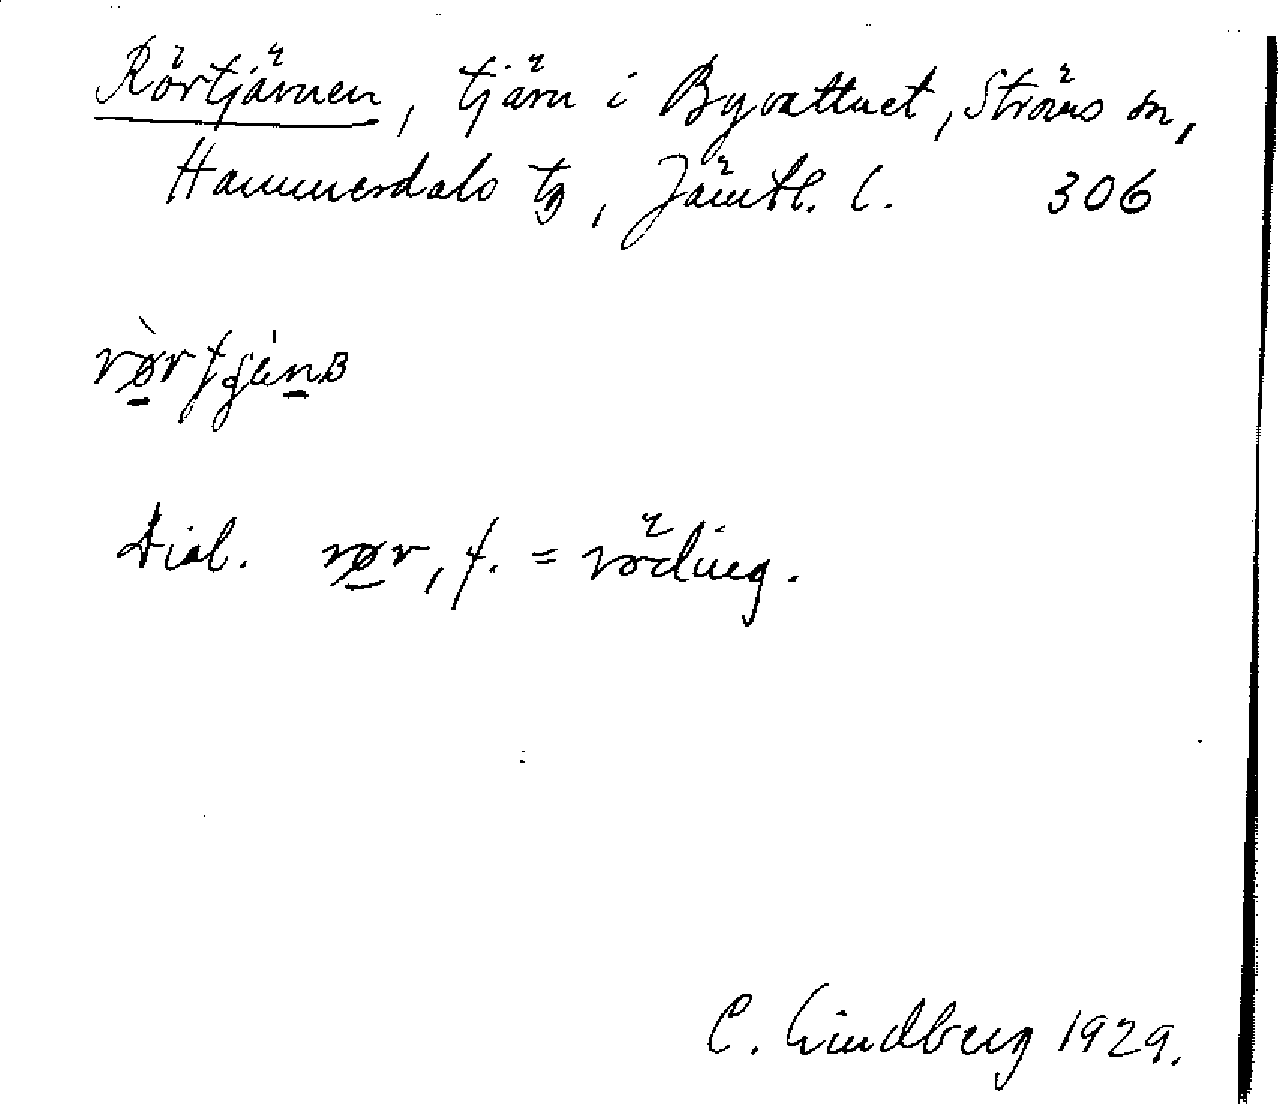 Rörtjärnen, tjärn i Byvattnet, Ströms sn,
Hammerdals tg, Jämtl. l. 306
Dial. rør, f. = röding.
C. Lindberg 1929.